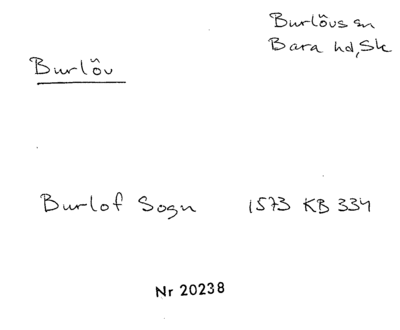 Burlövs sn
Bara hd, Sk
Burlöv
Burlof Sogn 1573 KB 334
Nr 20238